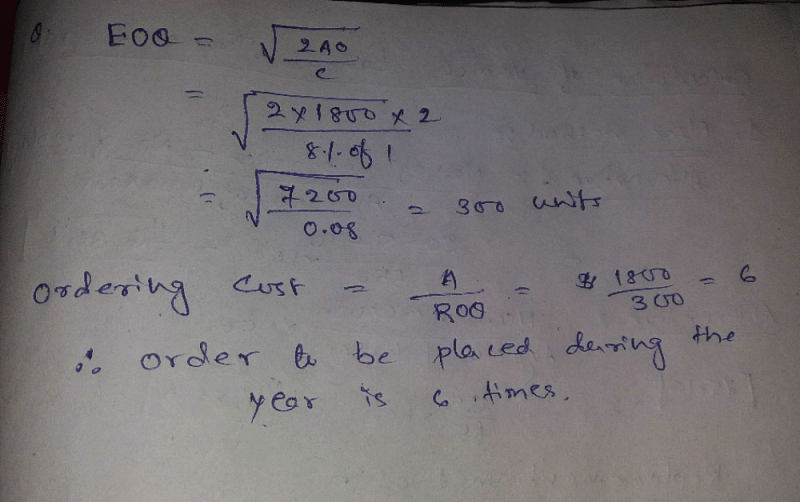 Q. EOQ = √2AO
C
= √2×1800 × 2
8 % of 1
= √7200 = 300 units
0.08
Ordering Cost = A = 1800 = 6
ROQ 300
∴ order to be placed during the
year is 6 times.